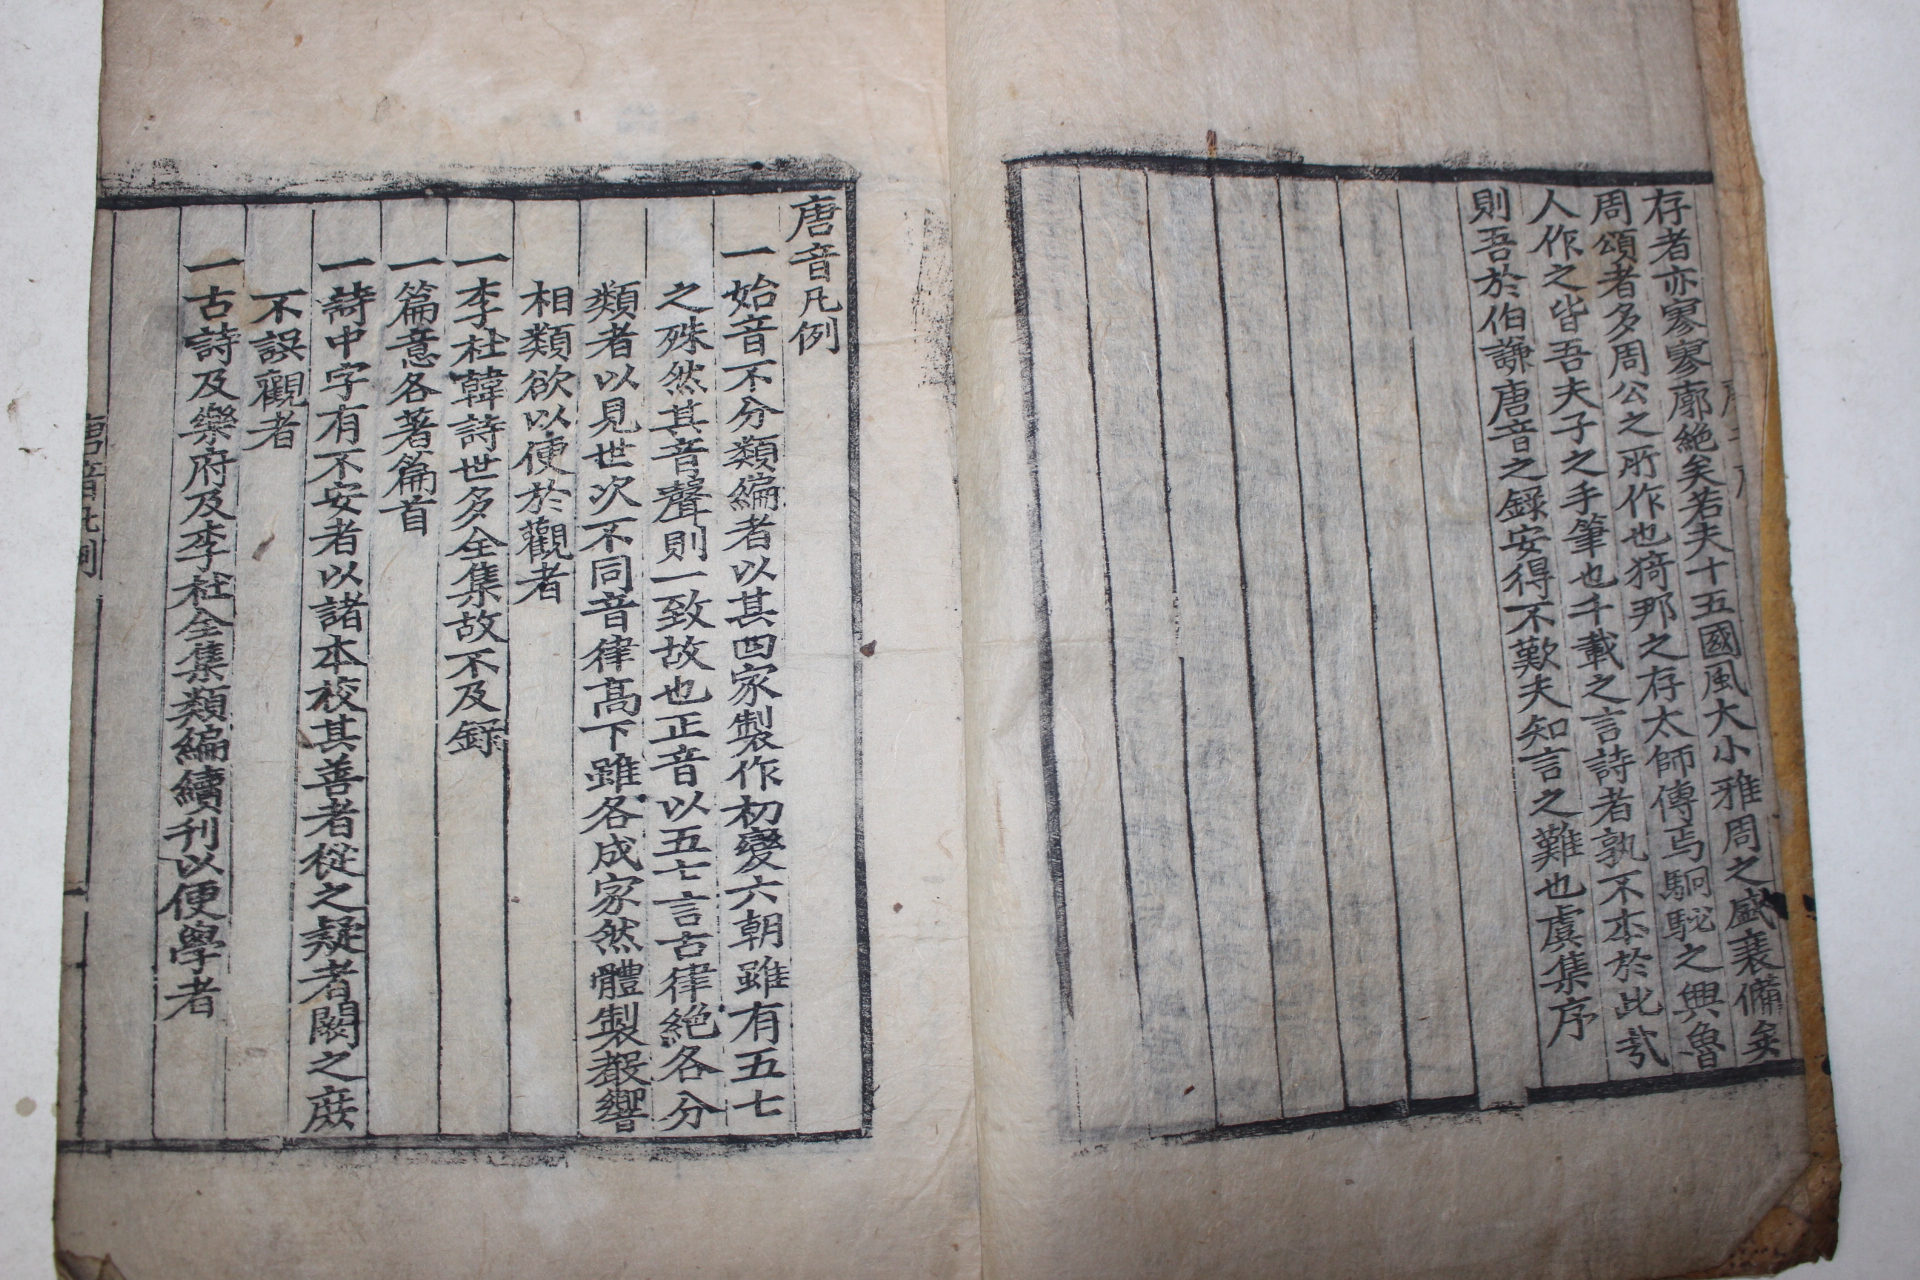 存者亦寥寥廓絶矣若夫十五國風大小雅周之盛衰備矣
周頌者多周公之所作也猗那之存太師傳焉駉駜之興魯
人作之皆吾夫子之手筆也千載之言詩者孰不本於此㢤
則吾於伯謙唐音之録安得不歎夫知言之難也虞集序
唐音凡例
一始音不分類編者以其四家製作初變六朝雖有五七
之殊然其音聲則一致故也正音以五七言古律絶各分
類者以見世次不同音律髙下雖各成家然體製嚴響
相類欲以便於觀者
一李杜韓詩世多全集故不及録
一篇意各著篇首
一詩中字有不安者以諸本校其善者從之疑者闕之庶
不誤觀者
一古詩及樂府及李杜全集類編續刊以便學者
唐音凡例